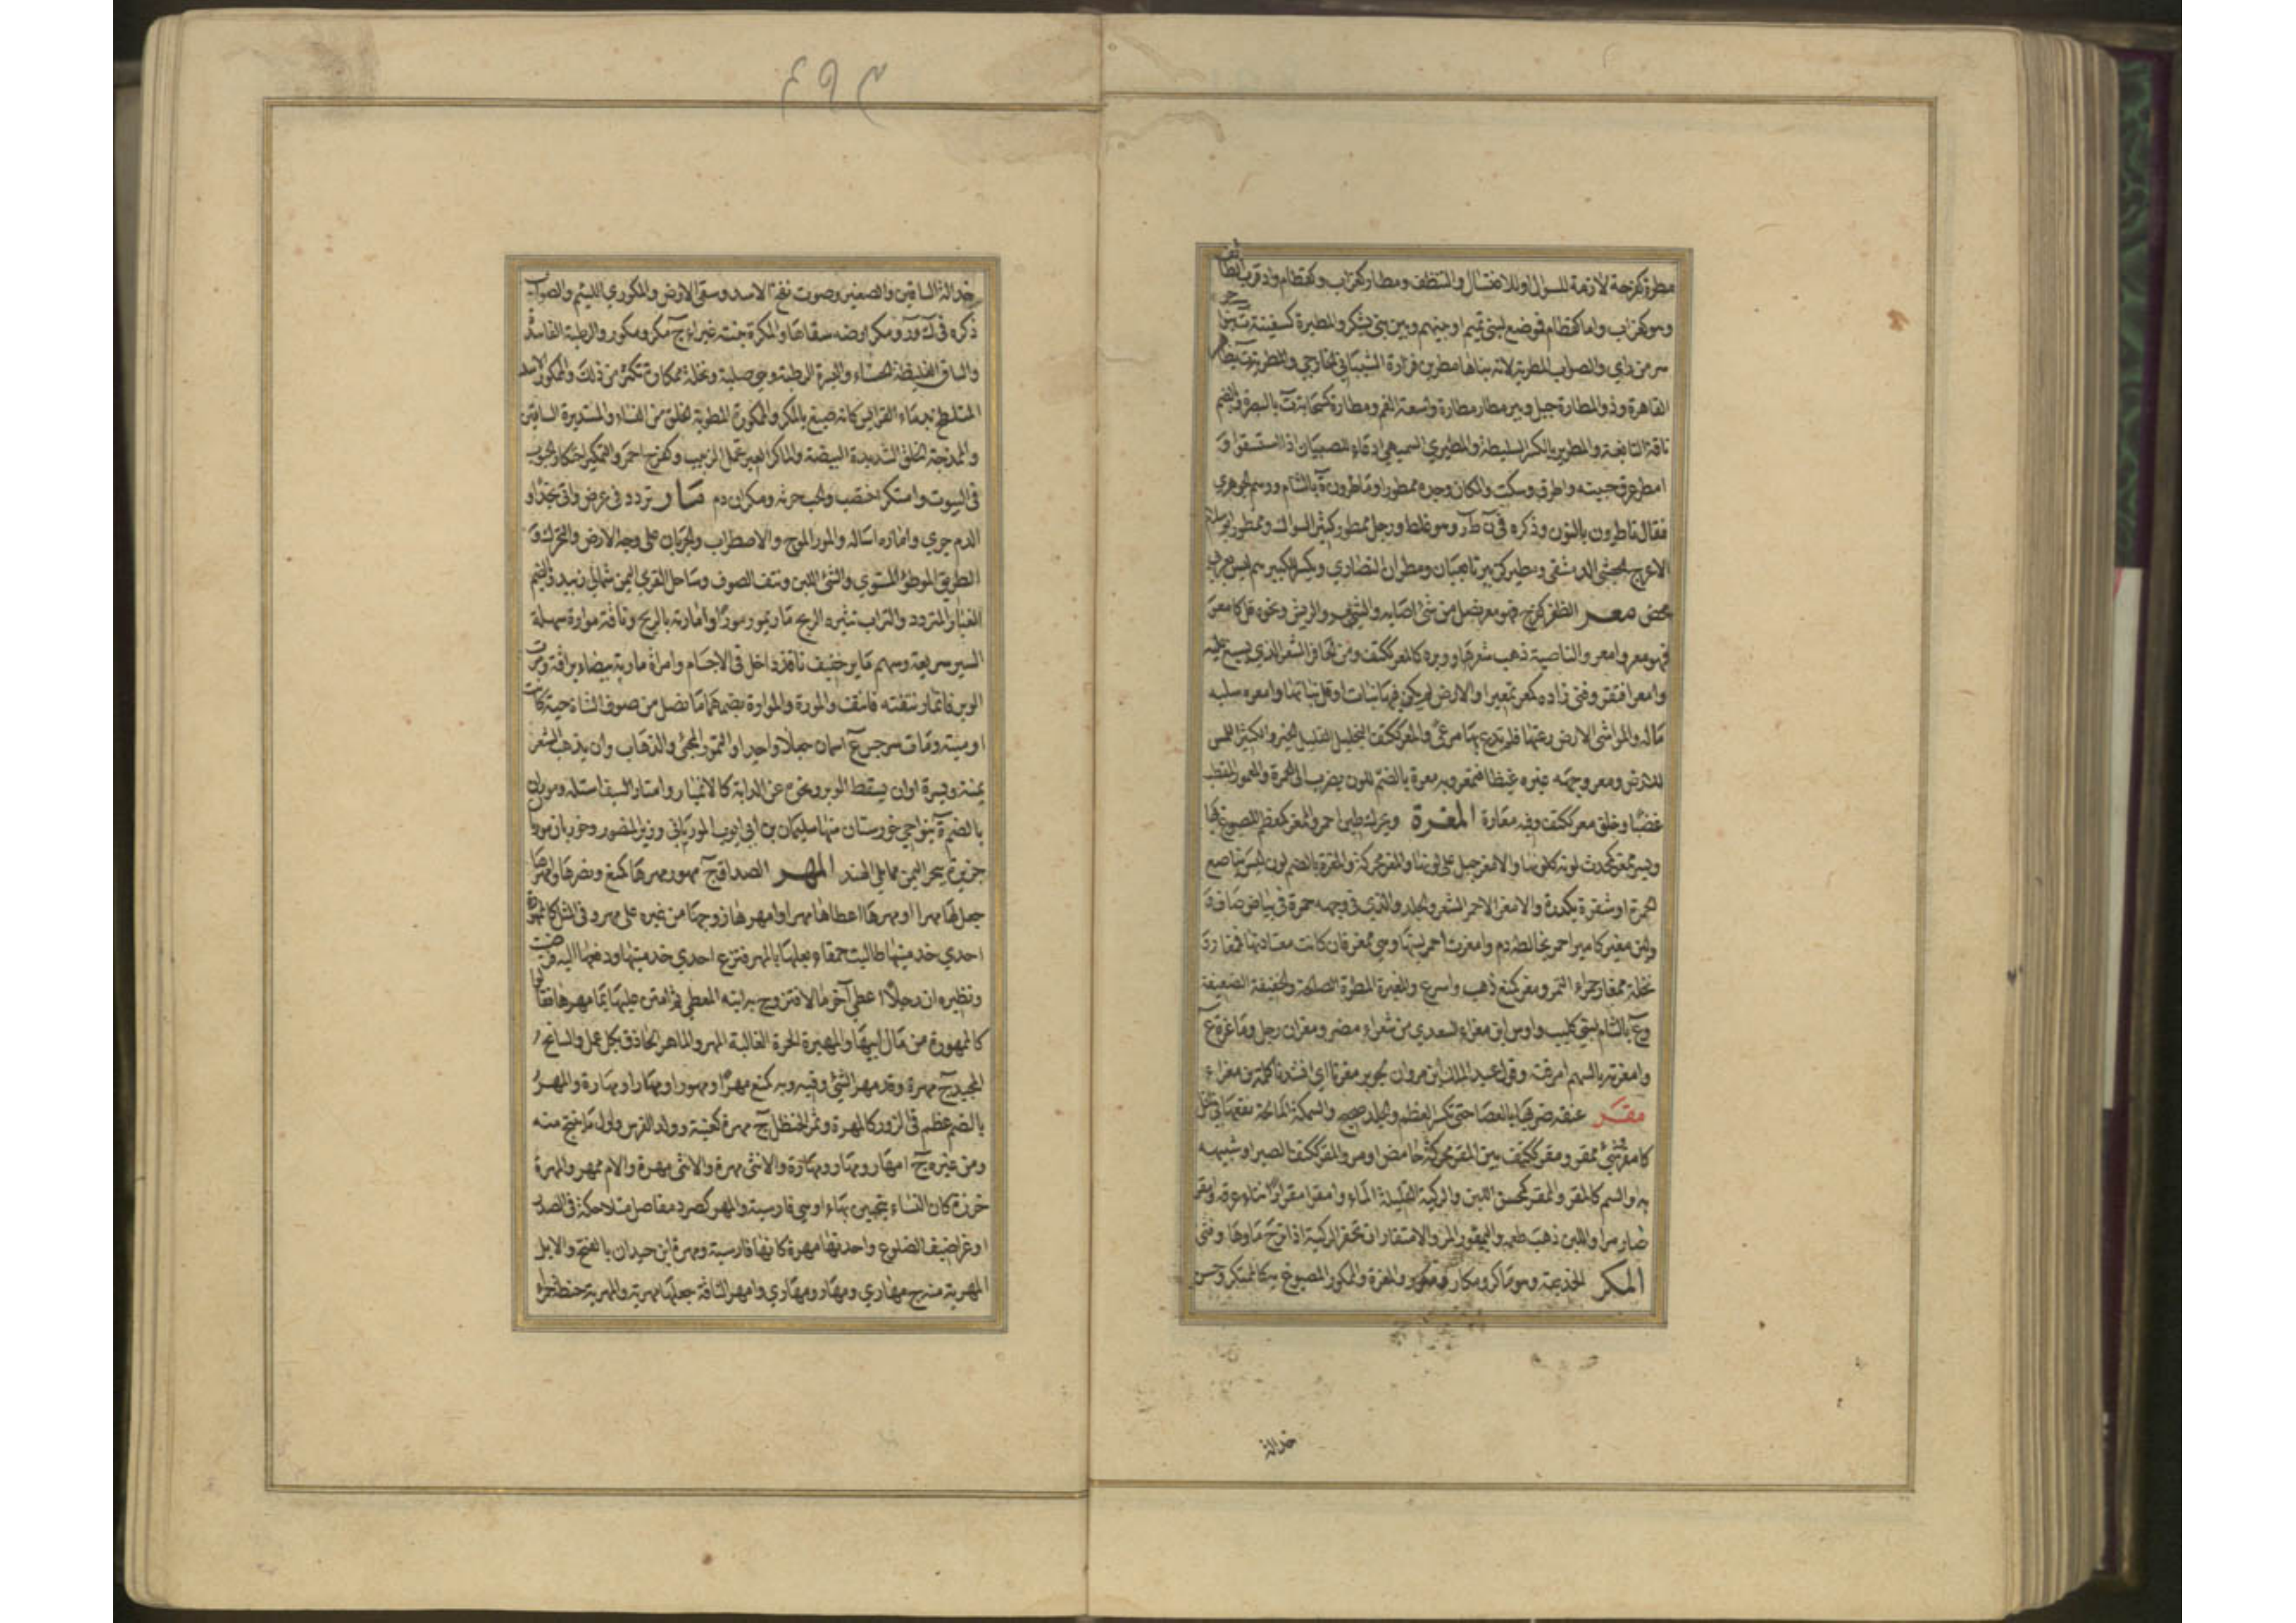 مطرة كفرحة لازمة للسواك او للاغتسال والتنظف ومطار كغراب وكقطام واد قرب الطائف
وهو كغراب واما كقطام فموضع لبني تميم او بينهم وبين بني يشكر والمطيرة كسفينة ة بنواحي
سر من راي والصواب المطرية لانه بناها مطر بن فزارة الشيباني الخارجي والمطرية ة بظاهر
القاهرة وذو المطارة جبل وبير مطار مطارة واسعة الفم ومطارة كسحابة ة بالبصرة وبالضم
ناقة النابغة والمطرير بالكسر السليطة والمطيري السميهي دعاء للصبيان اذا استسقوا و
امطر عرق جبينه واطرق وسكت والمكان وجده ممطورا وماطرون ة بالشام ووهم الجوهري
فقال ناطرون بالنون وذكره في ن ط ر وهو غلط ورجل ممطور كثير السواك وممطور ابو سلام
الاعرج الحبشي الدمشقي ومطير كزبير تابعيان ومطران النصاري ويكسر لكبيرهم ليس بعربي
محض معر الظفر كفرح فهو معر نصل من شئ اصابه والشعر والريش ونحوه قل كامعر
فهو معر وامعر والناصية ذهب شعرها ووبره كالمعر ككتف ومن الحافر الشعر الذي يسبغ عليه
وامعر افتقر وفني زاده كمعر تمعيرا والارض لم يكن فيها نبات او قل نباتها وامعره سلبه
ماله والمواشي الارض رعتها فلم تدع بها مرعى والمعر ككتف البخيل القليل الخير والكثير اللمس
للارض ومعر وجهه غيره غيظا فتمعر وبه معرة بالضم للون يضرب الى الحمرة والممعور المقطب
غضبا وخلق معر ككتف وفيه معارة المغرة ويحرك طين احمر والممغر كمعظم المصبوغ بها
وبسر ممغر كمحدث لونه كلونها والامغر جمل على لونها والمغر محركة والمغرة بالضم لون ليس بناصع
الحمرة او شقرة بكدرة والامغر الاحمر الشعر والجلد والذي في وجهه حمرة في بياض صاف و
لبن مغير كامير احمر يخالطه دم وامغرت احمر لبنها وهي ممغر فان كانت معتادتها فممغار و
نخلة ممغار حمراء التمر ومغر كمنع ذهب واسرع والمغرة المطرة الصالحة والخفيفة الضعيفة
وع بالشام لبني كليب واوس ابن مغراء السعدي من شعراء مضر ومغران رجل وماغرة ع
وامغرته بالسهم امرقته وقول عبد الملك ابن مروان لجرير مغرنا اي انشدنا كلمة بن مغراء
مقر عنقه ضربها بالعصا حتى تكسر العظم والجلد صحيح والسمكة المالحة نقعها في الخل
كامقر وشئ ممقر ومقر ككتف بين المقر محركة حامض او مر والمقر ككتف الصبر او شبيه
به او السم كالمقر والممقر كمحسن اللبن والركية القليلة الماء وامقر امقرارا نتأ عرقه وامقر
صار مرا واللبن ذهب طعمه واليمقور المر والامتقار ان تحفر الركية اذا نزح ماؤها وفني
المكر الخديعة وهو ماكر ومكار ومكور والمغرة والممكور المصبوغ به كالممتكر وحسن
خدالة
٤٩٣
خدالة الساقين والصفير وصوت نفخ الاسد وسقي الارض والمكوري اللئيم والصواب
ذكره في ك ور ومكر ارضه سقاها والمكرة نبتة غبراء ج مكر ومكور والرطبة الفاسدة
والساق الغليظة الحسناء والبسرة المرطبة وهي صلبة ونخلة ممكار تكثر من ذلك والممكور الاسد
المتلطخ بدماء الفرايس كانه صبغ بالمكر والممكورة المطوية الخلق من النساء والمستديرة الساقين
والمدمجة الخلق الشديدة البضعة والماكر العير تحمل الزبيب وكفرح احمر والتمكير احتكار الحبوب
في البيوت وامتكر اختضب والحب حرثه ومكران د م مار تردد في عرض واتى نجدا و
الدم جري واماره اساله والمور الموج والاضطراب والجريان على وجه الارض والتحرك و
الطريق الموطؤ المستوي والشئ اللين ونتف الصوف وساحل لقري اليمن شمالي زبيد وبالضم
الغبار المتردد والتراب تثيره الريح مار يمور مورا وامارته بالريح وناقة موارة سهلة
السير سريعة وسهم ماير خفيف نافذ داخل في الاجسام وامراة مارية بيضاء براقة ومرت
الوبر فانمار نتفته فانتتف والمورة والموارة بضمهما ما نصل من صوف الشاة حية كانت
او ميتة ومات سرجس ع اسمان جعلا واحدا والتمور المجئ والذهاب وان يذهب الشعر
يمنة ويسرة او ان يسقط الوبر ونحوه عن الدابة كالانميار وامتار السيف استله وموريان
بالضم ة بنواحي خوزستان منها سليمان بن ابي ايوب المورياني وزير المنصور وخوريان موريا
جزيرة ببحر اليمن مما يلي الهند المهر الصداق ج مهور مهرها كمنع ونصر ها وامهرها
جعل لها مهرا او مهرها اعطاها مهرا وامهرها زوجها من غيره على مهر وفي المثل كالممهورة
احدي خدمتيها طالبت حمقاء بعلها بالمهر فنزع احدي خدمتيها ودفعها اليها فرضيت
ونظيره ان رجلا اعطى آخر مالا فتزوج به ابنة المعطي ثم امتن عليها بما مهرها فقالوا
كالممهورة من مال ابيها والمهيرة الحرة الغالية المهر والماهر الحاذق بكل عمل والسابح
المجيد ج مهرة وقد مهر الشئ وفيه وبه كمنع مهرا ومهورا ومهارا ومهارة والمهر
بالضم عظم في الزور كالمهرة وثمر الحنظل ج مهرة كعنبة وولد الفرس واول ما ينتج منه
ومن غيره ج امهار ومهار ومهارة والانثى مهرة والانثى مهرة والام ممهر والمهرة
خرزة كان النساء يتحببن بها او هي فارسية والمهر كصرد مفاصل متلاحكة في الصدر
او غراضيف الضلوع واحدتها مهرة كانها فارسية ومهرة ابن حيدان بالفتح والابل
المهرية منه ج مهاري ومهار ومهاري وامهر الناقة جعلها مهرية والمهرية حنطة حمراء